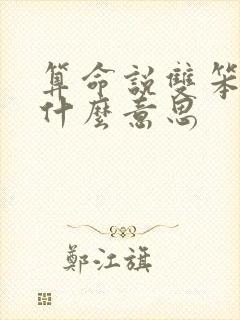 算命說雙笨
什麼意思
鄭江旗